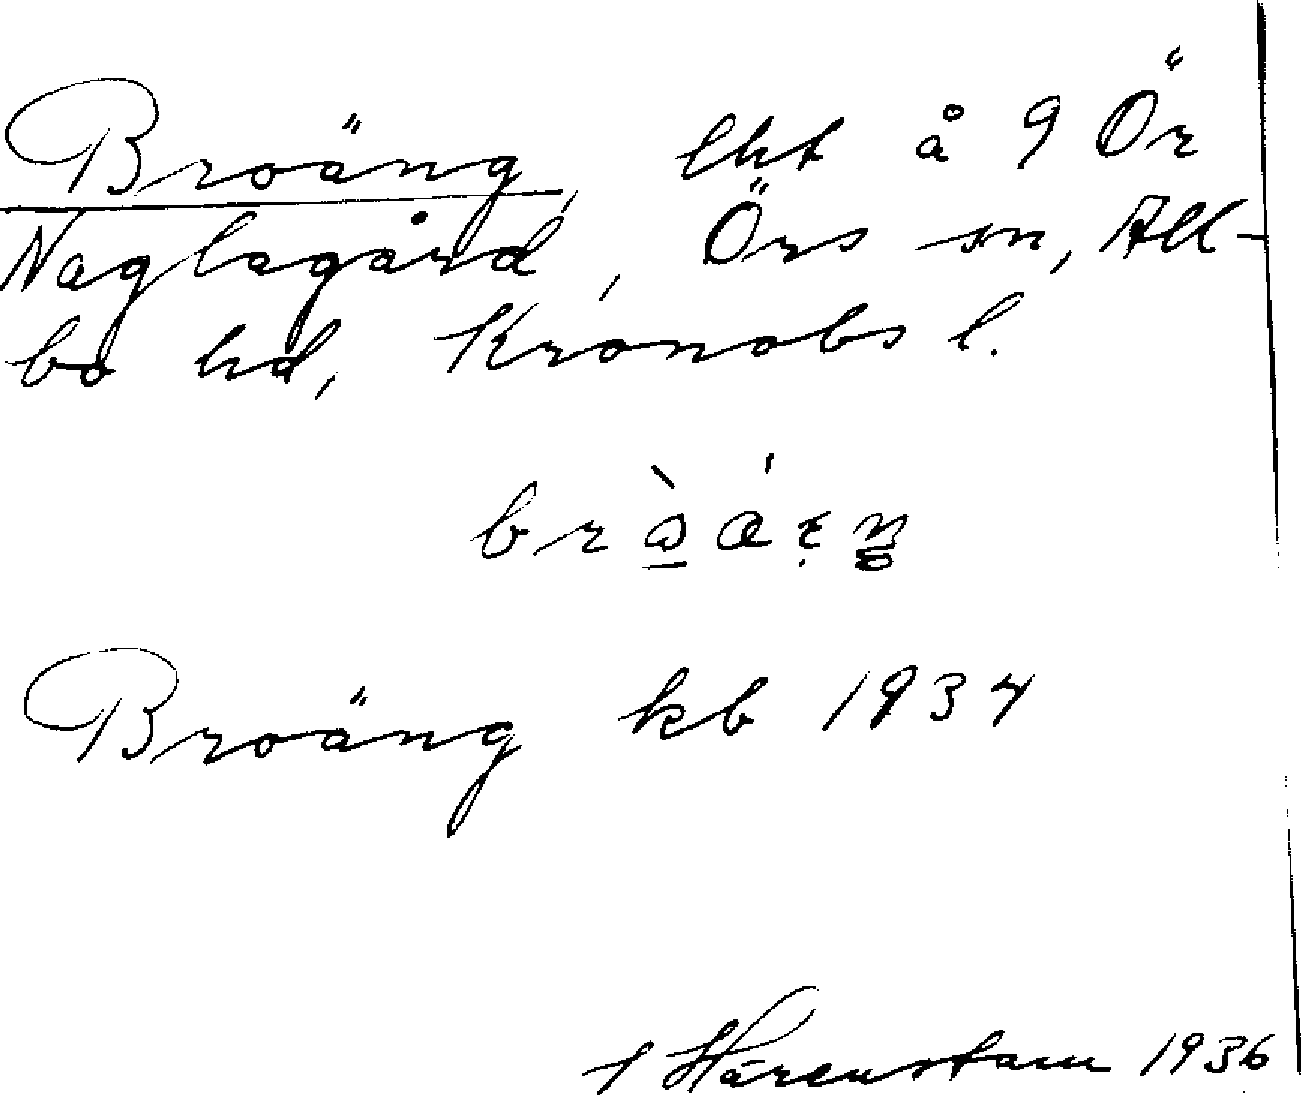 Broäng, lht å 9 Ör
Naglagård, Örs sn, All-
bo hd, Kronobs l.
Broäng kb 1934
Härenstam 1936